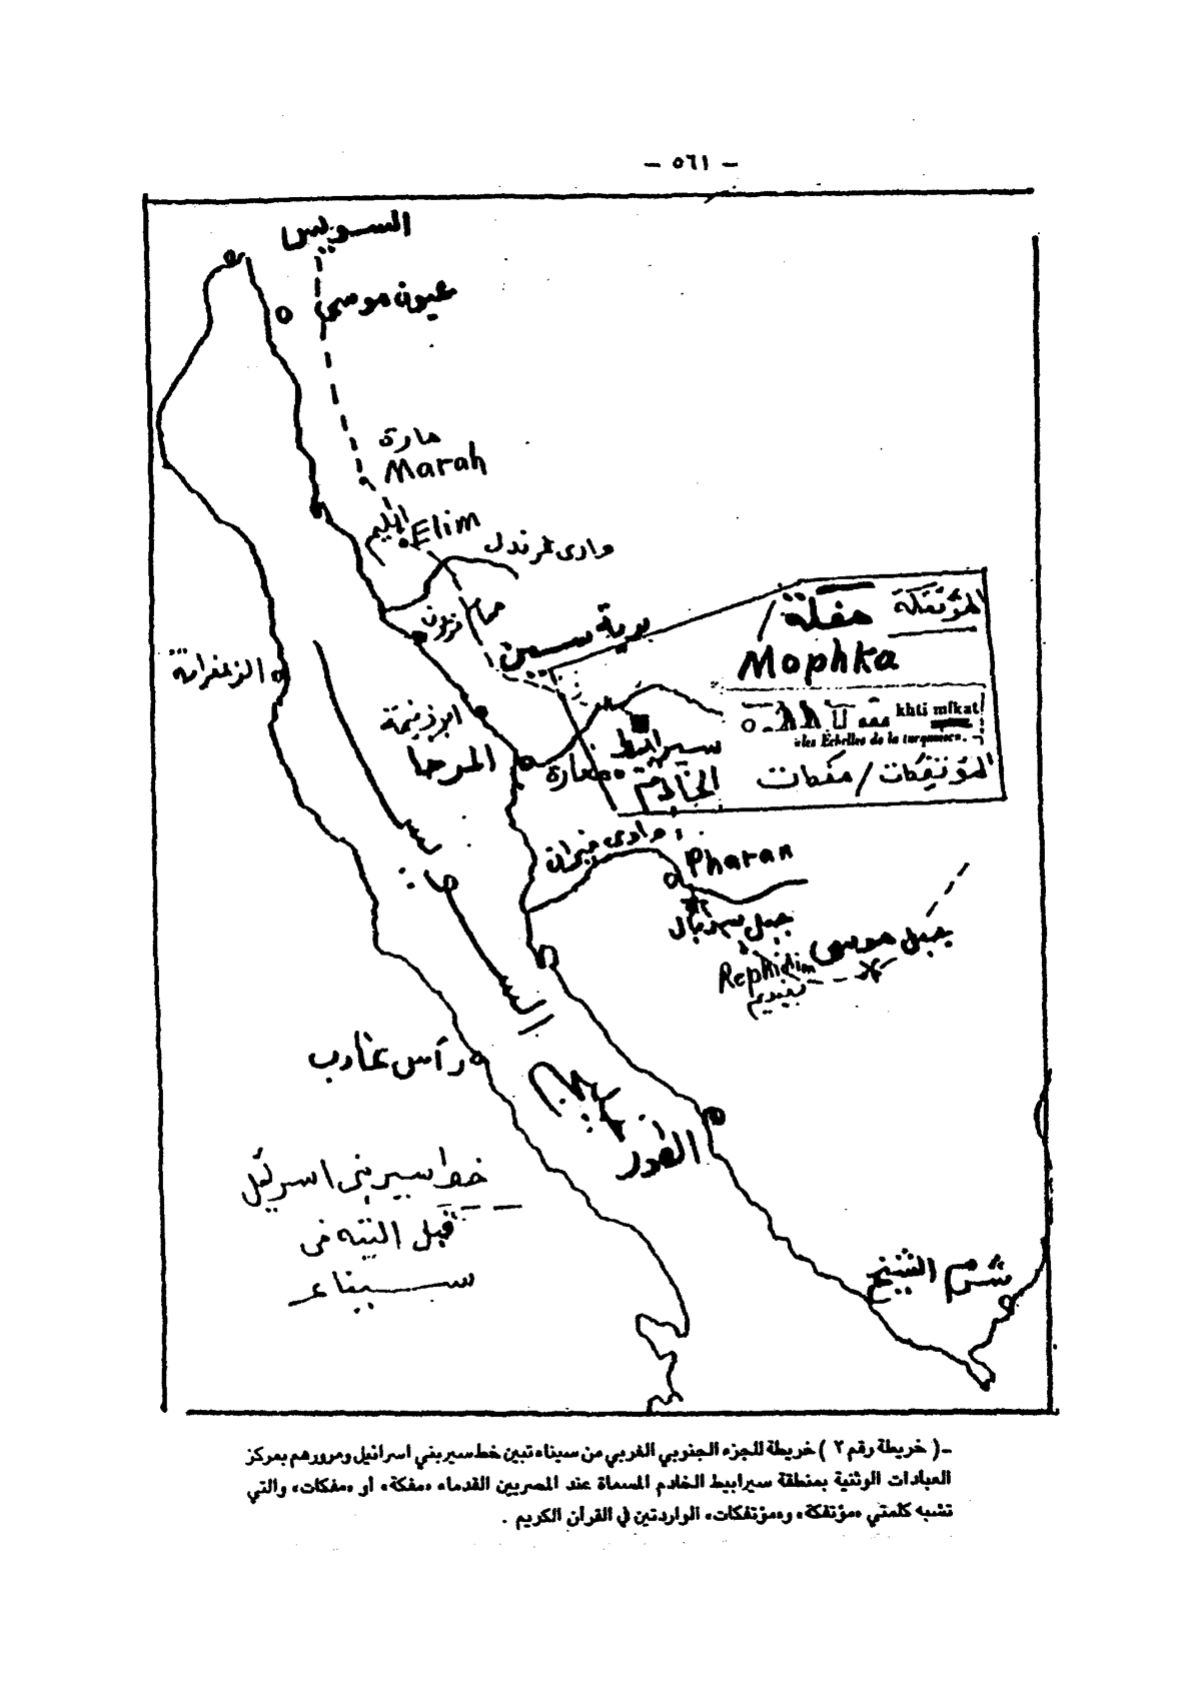 — ٥٦١ —
السويس
عيون موسى
مارة
Marah
ايليم Elim
وادى غرندل
حمام
برية سين
المؤتفكة / مفكة
Mophka
khti mfkat
«les Échelles de la turquoise».
المؤتفكات / مفكات
الزعفرانة
ابو زنيمة
المرخا
مغارة
سيرابيط
الخادم
وادى فيران
Pharan
جبل سربال
جبل موسى
Rephidim
رأس غارب
الطور
خط سير بنى اسرائيل
قبل التيه فى
سيناء
شرم الشيخ
ـ ( خريطة رقم ٢ ) خريطة للجزء الجنوبي الغربي من سيناء تبين خط سير بني اسرائيل ومرورهم بمركز
العبادات الوثنية بمنطقة سيرابيط الخادم المسماة عند المصريين القدماء «مفكة» أو «مفكات» والتي
تشبه كلمتي «مؤتفكة» و«مؤتفكات» الواردتين في القرآن الكريم .